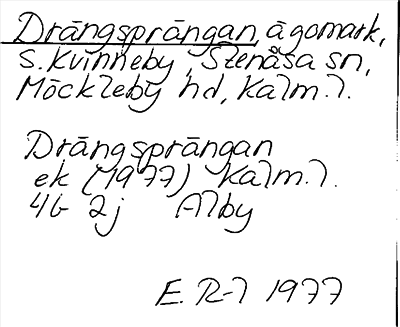 Drängsprängan, ägomark,
S. Kvinneby, Stenåsa sn,
Möckleby hd, Kalm. l.
Drängsprängan
ek (1977) Kalm. l.
4G 2j Alby
E. R-l 1977